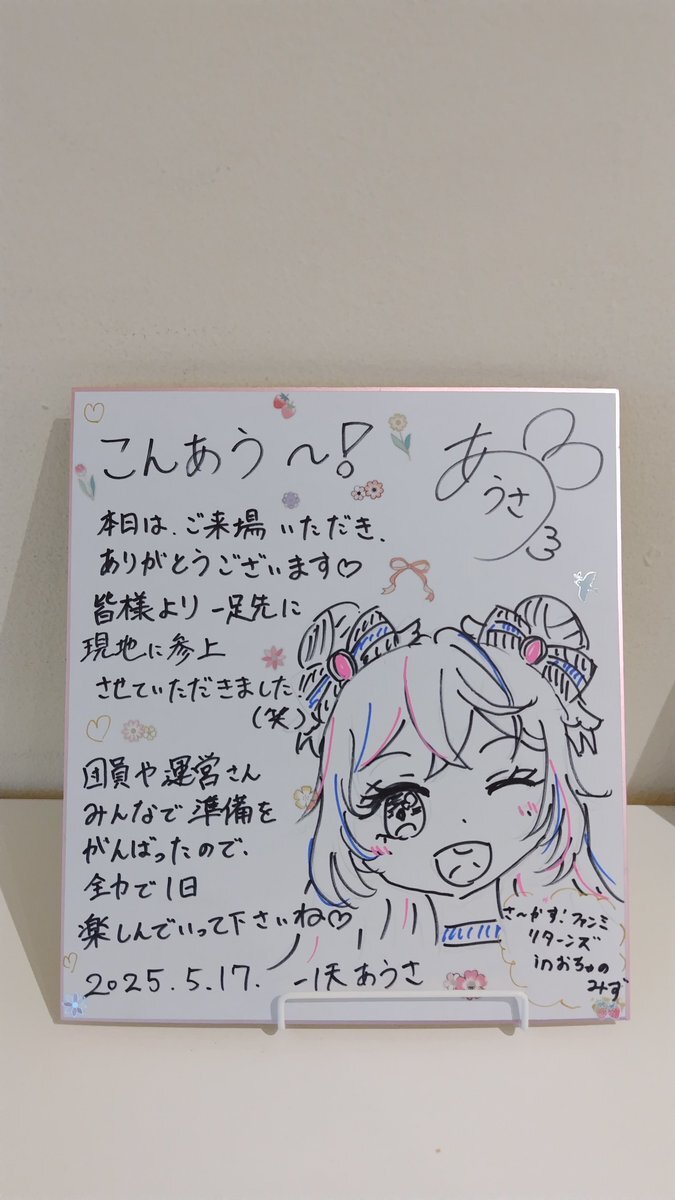 こんあう〜!
あうさ
本日は、ご来場いただき、
ありがとうございます♡
皆様より一足先に
現地に参上
させていただきました。
(笑)
団員や運営さん
みんなで準備を
がんばったので、
全力で1日
楽しんでいって下さいね♡
2025.5.17. 一天あうさ
さーかす!ファンミ
リターンズ
inおちゃの
みず